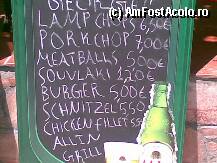 (c) AmFostAcolo.ro
SPECIALS
LAMP CHOPS 6,50€
PORK CHOP 7,00€
MEATBALLS 5,00€
SOUVLAKI 1,20€
BURGER 5,00€
SCHNITZEL 5,50
CHICKEN FILLET 5,50
ALL IN
GRILL